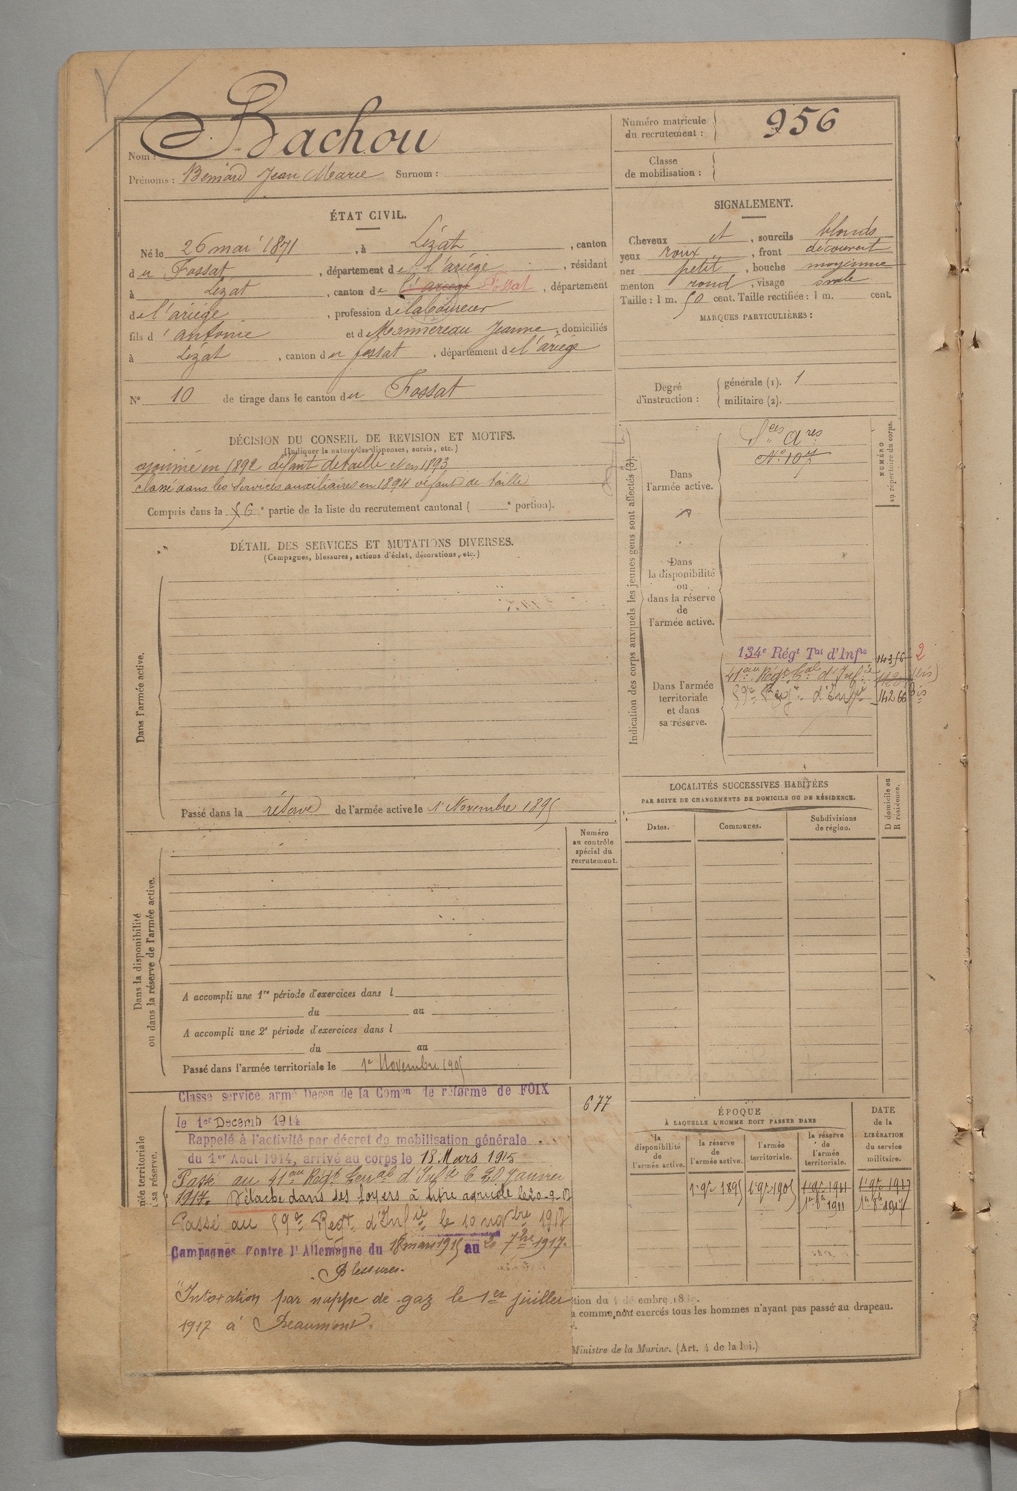 Bachou
Nom :
Prénoms : Bernard Jean Marie Surnom :
Numéro matricule du recrutement : 956
Classe de mobilisation :
ÉTAT CIVIL.
Né le 26 mai 1871, à Lézat, canton
du Fossat, département de l'ariège, résidant
à Lézat, canton de Fossat, département
de l'ariège, profession de laboureur
fils d'antoine et de Jeanne, domiciliés
à Lézat, canton du fossat, département de l'ariège
N° 10 de tirage dans le canton du Fossat
SIGNALEMENT.
Cheveux et, sourcils blonds
yeux roux, front découvert
nez petit, bouche moyenne
menton rond, visage ovale
Taille : 1 m. 50 cent. Taille rectifiée : 1 m. cent.
MARQUES PARTICULIÈRES :
Degré d'instruction : générale (1). 1
militaire (2).
DÉCISION DU CONSEIL DE REVISION ET MOTIFS.
(Indiquer la nature des dispenses, sursis, etc.)
ajourné en 1892 défaut de taille et en 1893
classé dans les Services auxiliaires en 1894 défaut de taille
Compris dans la 6e partie de la liste du recrutement cantonal ( e portion).
DÉTAIL DES SERVICES ET MUTATIONS DIVERSES.
(Campagnes, blessures, actions d'éclat, décorations, etc.)
Dans l'armée active.
Passé dans la réserve de l'armée active le 1er Novembre 1895
Indication des corps auxquels les jeunes gens sont affectés (3).
NUMÉRO au répertoire du corps.
Dans l'armée active.
Dans la disponibilité ou dans la réserve de l'armée active.
Dans l'armée territoriale et dans sa réserve.
134e Régt Tal d'Infie
LOCALITÉS SUCCESSIVES HABITÉES
PAR SUITE DE CHANGEMENTS DE DOMICILE OU DE RÉSIDENCE.
Dates.
Communes.
Subdivisions de région.
D domicile ou R résidence.
Numéro au contrôle spécial du recrutement.
Dans la disponibilité
ou dans la réserve de l'armée active.
A accompli une 1re période d'exercices dans l
du au
A accompli une 2e période d'exercices dans l
du au
Passé dans l'armée territoriale le 1er Novembre 1905
677
Classé service armé Déçon de la Comon de réforme de FOIX
le 1er Décemb 1914
Rappelé à l'activité par décret de mobilisation générale
du 1er Août 1914, arrivé au corps le 18 Mars 1915
Passé au 41eme Régt d'Infie le 20 Janvier
1917. Détaché dans ses foyers à titre agricole le 20-9-17
Passé au 59e Regt d'Infie le 10 nobre 1917
Campagnes contre l'Allemagne du 18 mars 1915 au 20 7bre 1917.
Blessures.
Intoxication par nappe de gaz le 1er juillet
1917 à Beaumont.
ÉPOQUE
À LAQUELLE L'HOMME DOIT PASSER DANS
la disponibilité de l'armée active.
la réserve de l'armée active.
l'armée territoriale.
la réserve de l'armée territoriale.
DATE de la LIBÉRATION du service militaire.
a comme, sont exercés tous les hommes n'ayant pas passé au drapeau.
Ministre de la Marine. (Art. 4 de la loi.)